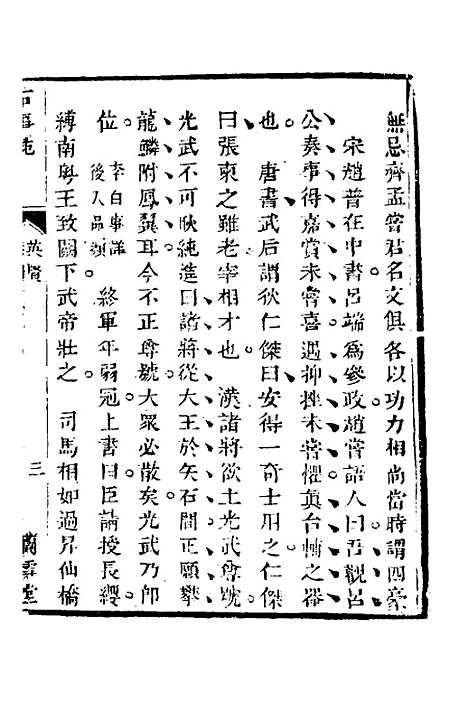 無忌齊孟嘗君名文俱各以功力相尚當時謂四豪
宋趙普在中書呂端為參政趙嘗語人曰吾觀呂
公奏事得嘉賞未嘗喜遇抑挫未嘗懼真台輔之器
也　唐書武后謂狄仁傑曰安得一奇士用之仁傑
曰張柬之雖老宰相才也　漢諸將欲上光武尊號
光武不可耿純進曰諸將從大王於矢石間正願攀
龍鱗附鳳翼耳今不正尊號大眾必散矣光武乃即
位　李白事詳
後人品類　終軍年弱冠上書曰臣請授長纓
縛南粵王致闕下武帝壯之　司馬相如過昇仙橋
英賢
三
蘭雪堂